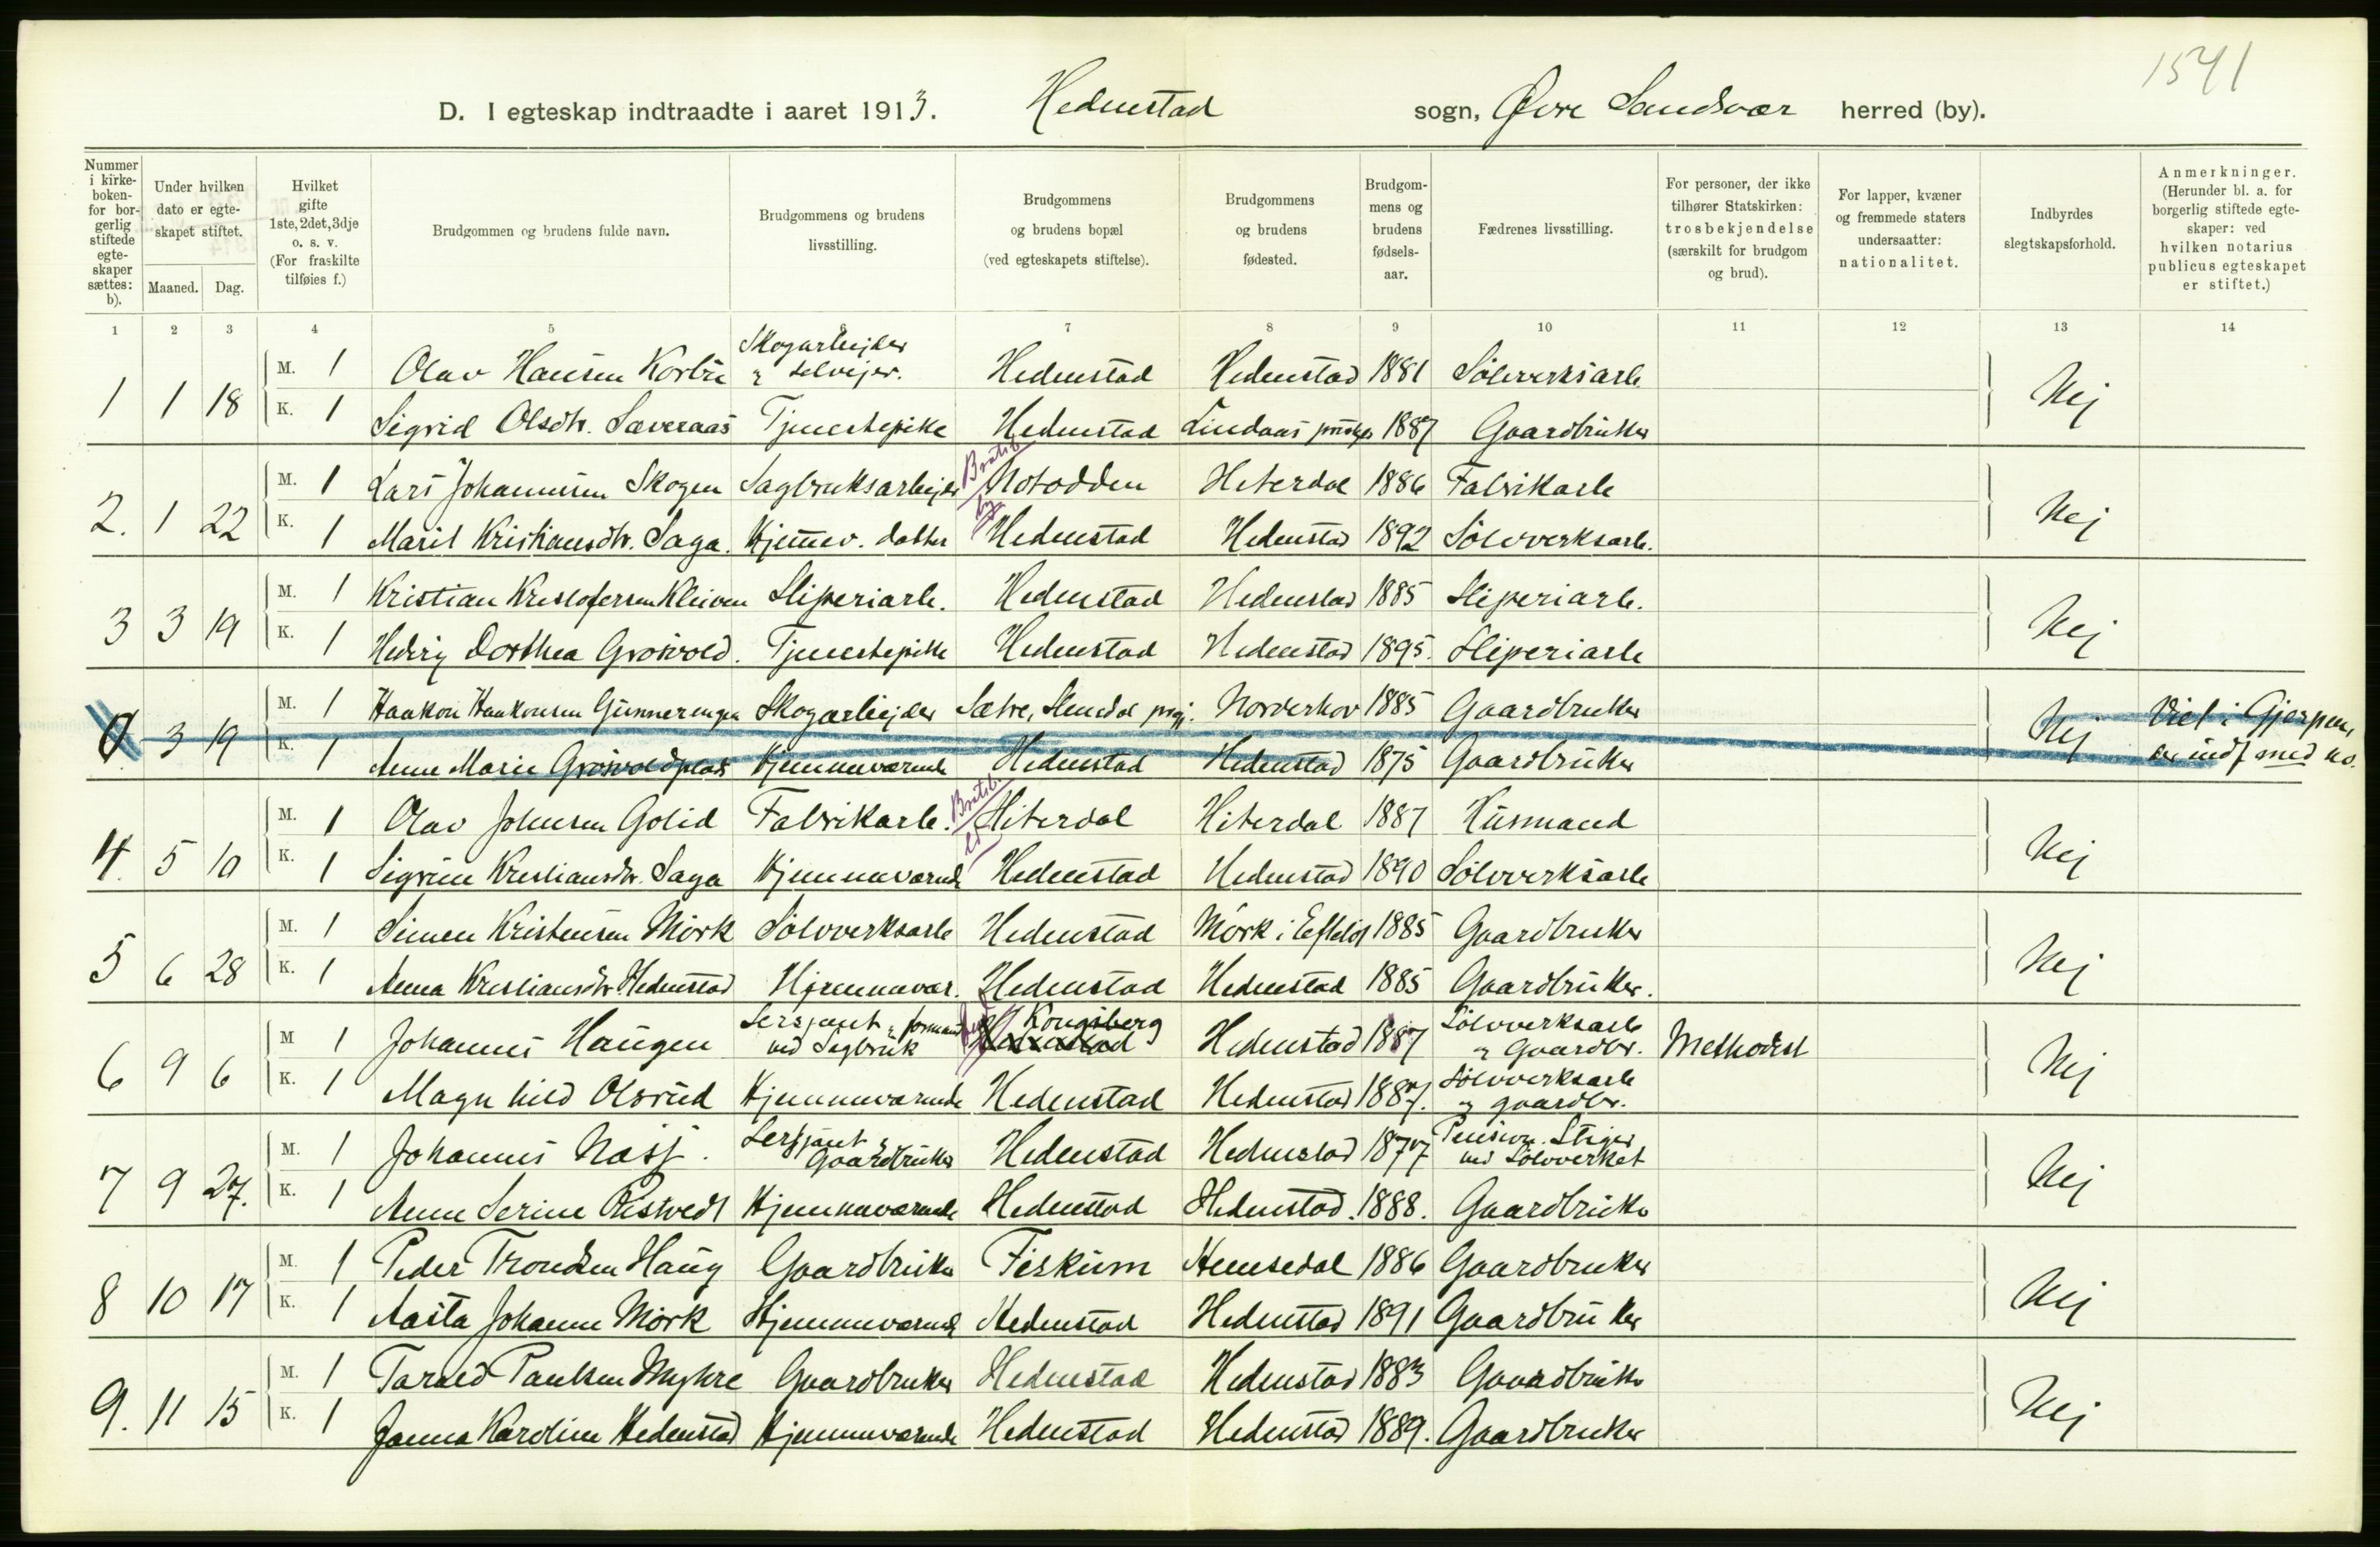 1541
D. I egteskap indtraadte i aaret 1913. Hedenstad sogn, Øvre Sandsvær herred (by).
Nummer i kirke-boken- for bor-gerlig stiftede egte-skaper sættes: b).
Under hvilken dato er egte-skapet stiftet.
Maaned. Dag.
Hvilket gifte 1ste, 2det, 3dje o. s. v. (For fraskilte tilføies f.)
Brudgommen og brudens fulde navn.
Brudgommens og brudens livsstilling.
Brudgommens og brudens bopæl (ved egteskapets stiftelse).
Brudgommens og brudens fødested.
Brudgom-mens og brudens fødsels-aar.
Fædrenes livsstilling.
For personer, der ikke tilhører Statskirken: trosbekjendelse (særskilt for brudgom og brud).
For lapper, kvæner og fremmede staters undersaatter: nationalitet.
Indbyrdes slegtskapsforhold.
Anmerkninger. (Herunder bl. a. for borgerlig stiftede egte-skaper: ved hvilken notarius publicus egteskapet er stiftet.)
1 2 3 4 5 6 7 8 9 10 11 12 13 14
1 1 18 M. 1 Olav Hansen Korbu Skogarbejder & selvejer. Hedenstad Hedenstad 1881 Sölvverksarb. Nej
K. 1 Sigrid Olsdtr. Sæveraas Tjenestepike Hedenstad Lindaas 1887 Gaardbruker
2. 1 22 M. 1 Lars Johannesen Skogen Sagbruksarbejder Bratsb. Notodden by Hiterdal 1886 Fabrikarb Nej
K. 1 Marit Kristiansdtr. Saga. Hjemmev. datter Hedenstad Hedenstad 1892 Sölvverksarb.
3 3 19 M. 1 Kristian Kristofersen Kleiven Sliperiarb. Hedenstad Hedenstad 1885 Sliperiarb. Nej
K. 1 Hedvig Dorthea Grosvold. Tjenestepike Hedenstad Hedenstad 1895. Sliperiarb
0 3 19 M. 1 Haakon Haakonsen Gunnerengen Skogarbejder Sætre, prgj. Norderhov 1885 Gaardbruker Nej Viet i Gjerpen, er indf med no.
K. 1 Anne Marie Grosvoldplads Hjemmeværende Hedenstad Hedenstad 1875 Gaardbruker
4. 5 10 M. 1 Olav Johnsen Golid Fabrikarb. Bratsb. Hiterdal Hiterdal 1887 Husmand Nej
K. 1 Sigrun Kristiansdtr. Saga Hjemmeværende Hedenstad Hedenstad 1890 Sölvverksarb
5 6 28 M. 1 Simen Kristensen Mörk Sölvverksarb Hedenstad Mörk i Efteløt 1885 Gaardbruker Nej
K. 1 Anna Kristiansdtr Hedenstad Hjemmevær. Hedenstad Hedenstad 1885 Gaardbruker.
6 9 6 M 1 Johannes Haugen Sersjant & formand ved Sagbruk Kongsberg Hedenstad Hedenstad 1887 Sölvverksarb & Gaardbr. Methodist Nej
K. 1 Magnhild Olsrud Hjemmeværende Hedenstad Hedenstad 1887. Sölvverksarb & gaardbr.
7 9 27. M. 1 Johannes Næss. Sersjant & Gaardbruker Hedenstad Hedenstad 1877 Pension. Stiger ved Sölvverket Nej
K. 1 Anne Serine Ristvedt Hjemmeværende Hedenstad Hedenstad. 1888. Gaardbruker
8 10 17 M. 1 Peder Trondsen Haug Gaardbruker Fiskum Hemsedal 1886 Gaardbruker Nej
K. 1 Aasta Johanne Mörk Hjemmeværende Hedenstad Hedenstad 1891 Gaardbruker
9. 11 15 M. 1 Tarald Paulsen Myhre Gaardbruker Hedenstad Hedenstad 1883 Gaardbruker Nej
K. 1 Janna Karoline Hedenstad Hjemmeværende Hedenstad Hedenstad 1889. Gaardbruker